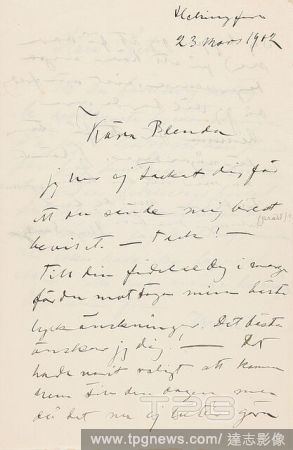 Helsingfors
23 mars 1902
Kära Blenda
jag har ej tackat dig för
att du sände mig
beviset. — Tack! —
Till din födelsedag i
får du mottaga mina bästa
lyckönskningar. Det bästa
önskar jag dig! — Det
hade varit roligt att komma
hem till den dagen men
då det nu ej
www.tpgnews.com / 達志影像